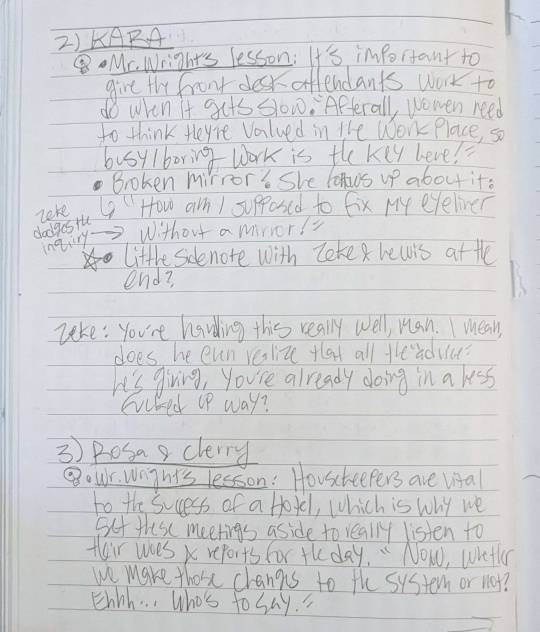 2) KARA
• Mr. Wright's lesson: It's important to
give the front desk attendants work to
do when it gets slow. "Afterall, women need
to think they're valued in the workplace, so
busy/boring work is the key here!"
• Broken mirror? She follows up about it:
↳ "How am I supposed to fix my eyeliner
without a mirror!"
Zeke
dodges the
inquiry →
☆• Little sidenote with Zeke & Lewis at the
end?
Zeke: You're handling this really well, man. I mean,
does he even realize that all the "advice"
he's giving, you're already doing in a less
fucked up way?
3) Rosa & Cherry
• Mr. Wright's lesson: Housekeepers are vital
to the success of a Hotel, which is why we
set these meetings aside to really listen to
their woes & reports for the day. "Now, whether
we make those changes to the system or not?
Ehhh... who's to say."